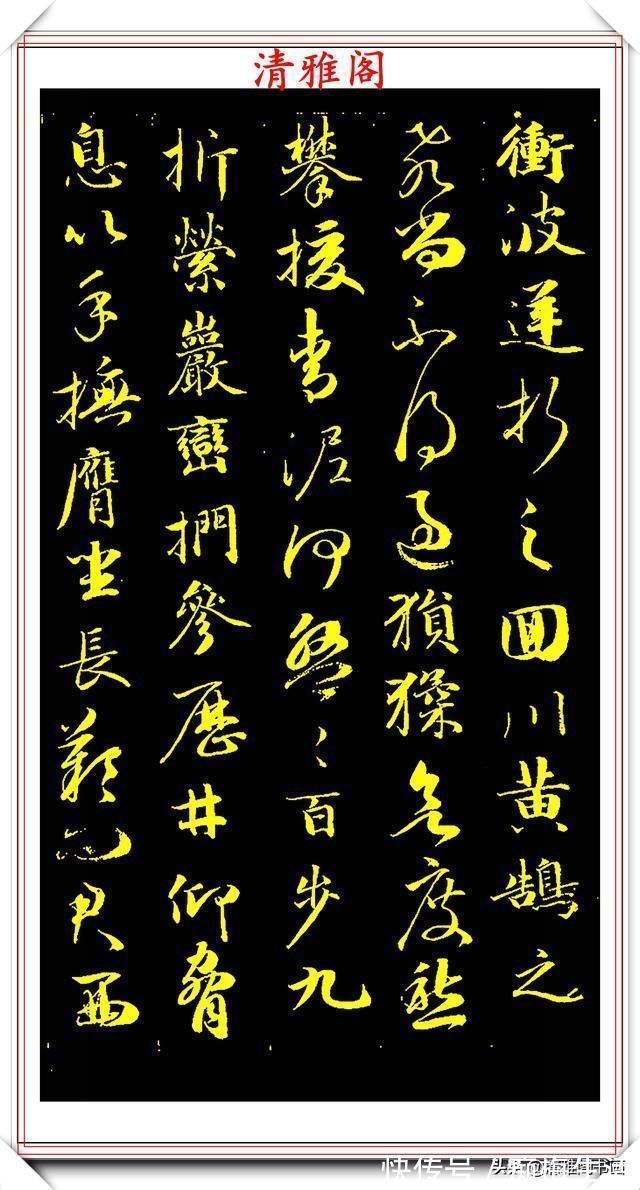 清雅阁
衝波逆折之回川黄鵠之
飛尚不得過猿猱欲度愁
攀援青泥何盤〻百步九
折縈巖巒捫參歷井仰脅
息以手撫膺坐長歎問君西
快传号
头条